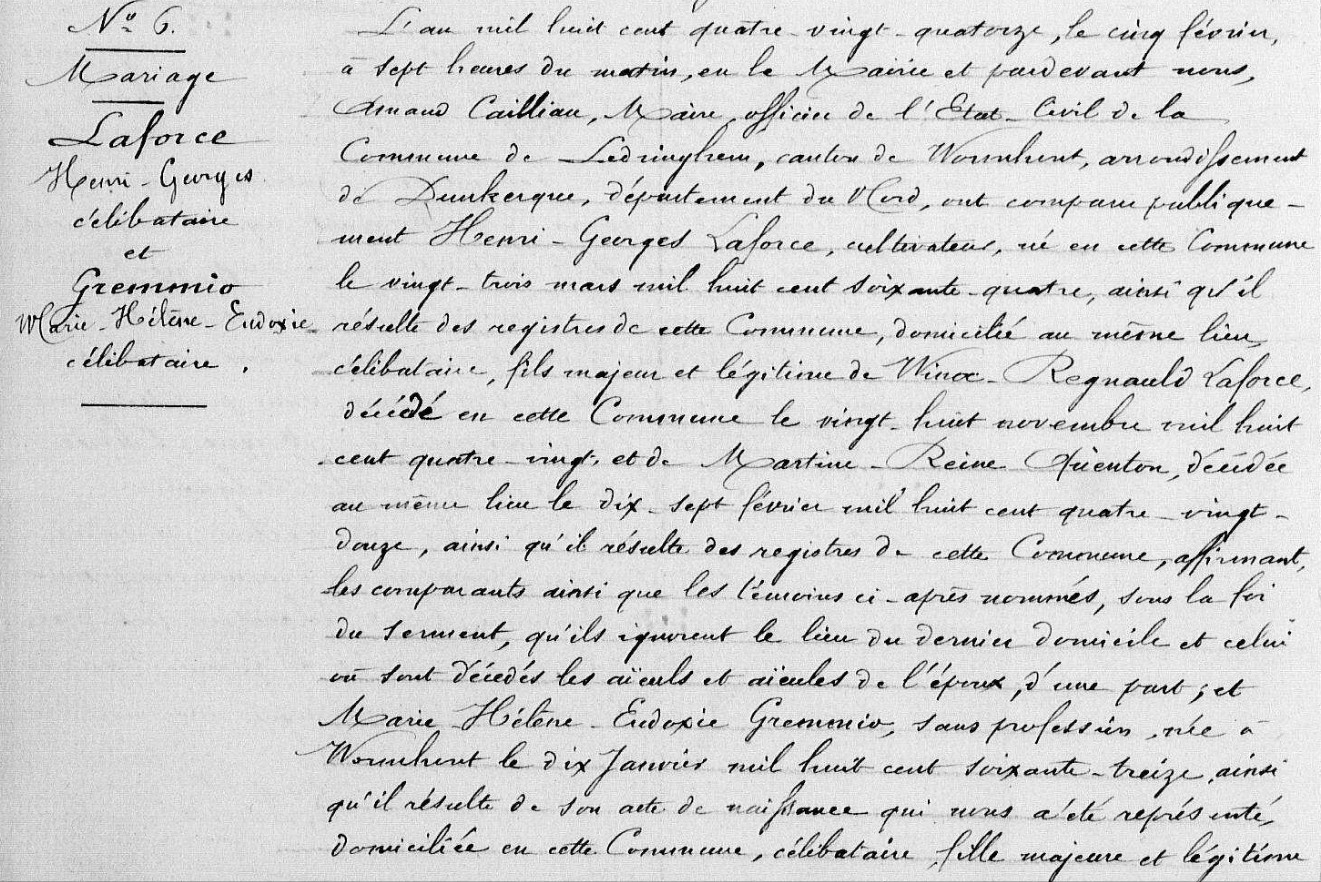 Nº 6.
Mariage
Laforce
Henri-Georges
célibataire
et
Gremmio
Marie-Hélène-Eudoxie
célibataire.
L'an mil huit cent quatre-vingt-quatorze, le cinq février,
à sept heures du matin, en la Mairie et pardevant nous,
Amand Cailliau, Maire, officier de l'Etat-Civil de la
Commune de Ledringhem, canton de Wormhout, arrondissement
de Dunkerque, département du Nord, ont comparu publique-
ment Henri-Georges Laforce, cultivateur, né en cette Commune
le vingt-trois mars mil huit cent soixante-quatre, ainsi qu'il
résulte des registres de cette Commune, domicilié au même lieu,
célibataire, fils majeur et légitime de Winoc-Regnauld Laforce,
décédé en cette Commune le vingt-huit novembre mil huit
cent quatre-vingt, et de Martine-Reine Quenton, décédée
au même lieu le dix-sept février mil huit cent quatre-vingt-
douze, ainsi qu'il résulte des registres de cette Commune, affirmant,
les comparants ainsi que les témoins ci-après nommés, sous la foi
du serment, qu'ils ignorent le lieu du dernier domicile et celui
où sont décédés les aïeuls et aïeules de l'époux, d'une part; et
Marie-Hélène-Eudoxie Gremmio, sans profession, née à
Wormhout le dix Janvier mil huit cent soixante-treize, ainsi
qu'il résulte de son acte de naissance qui nous a été représenté,
domiciliée en cette Commune, célibataire, fille majeure et légitime